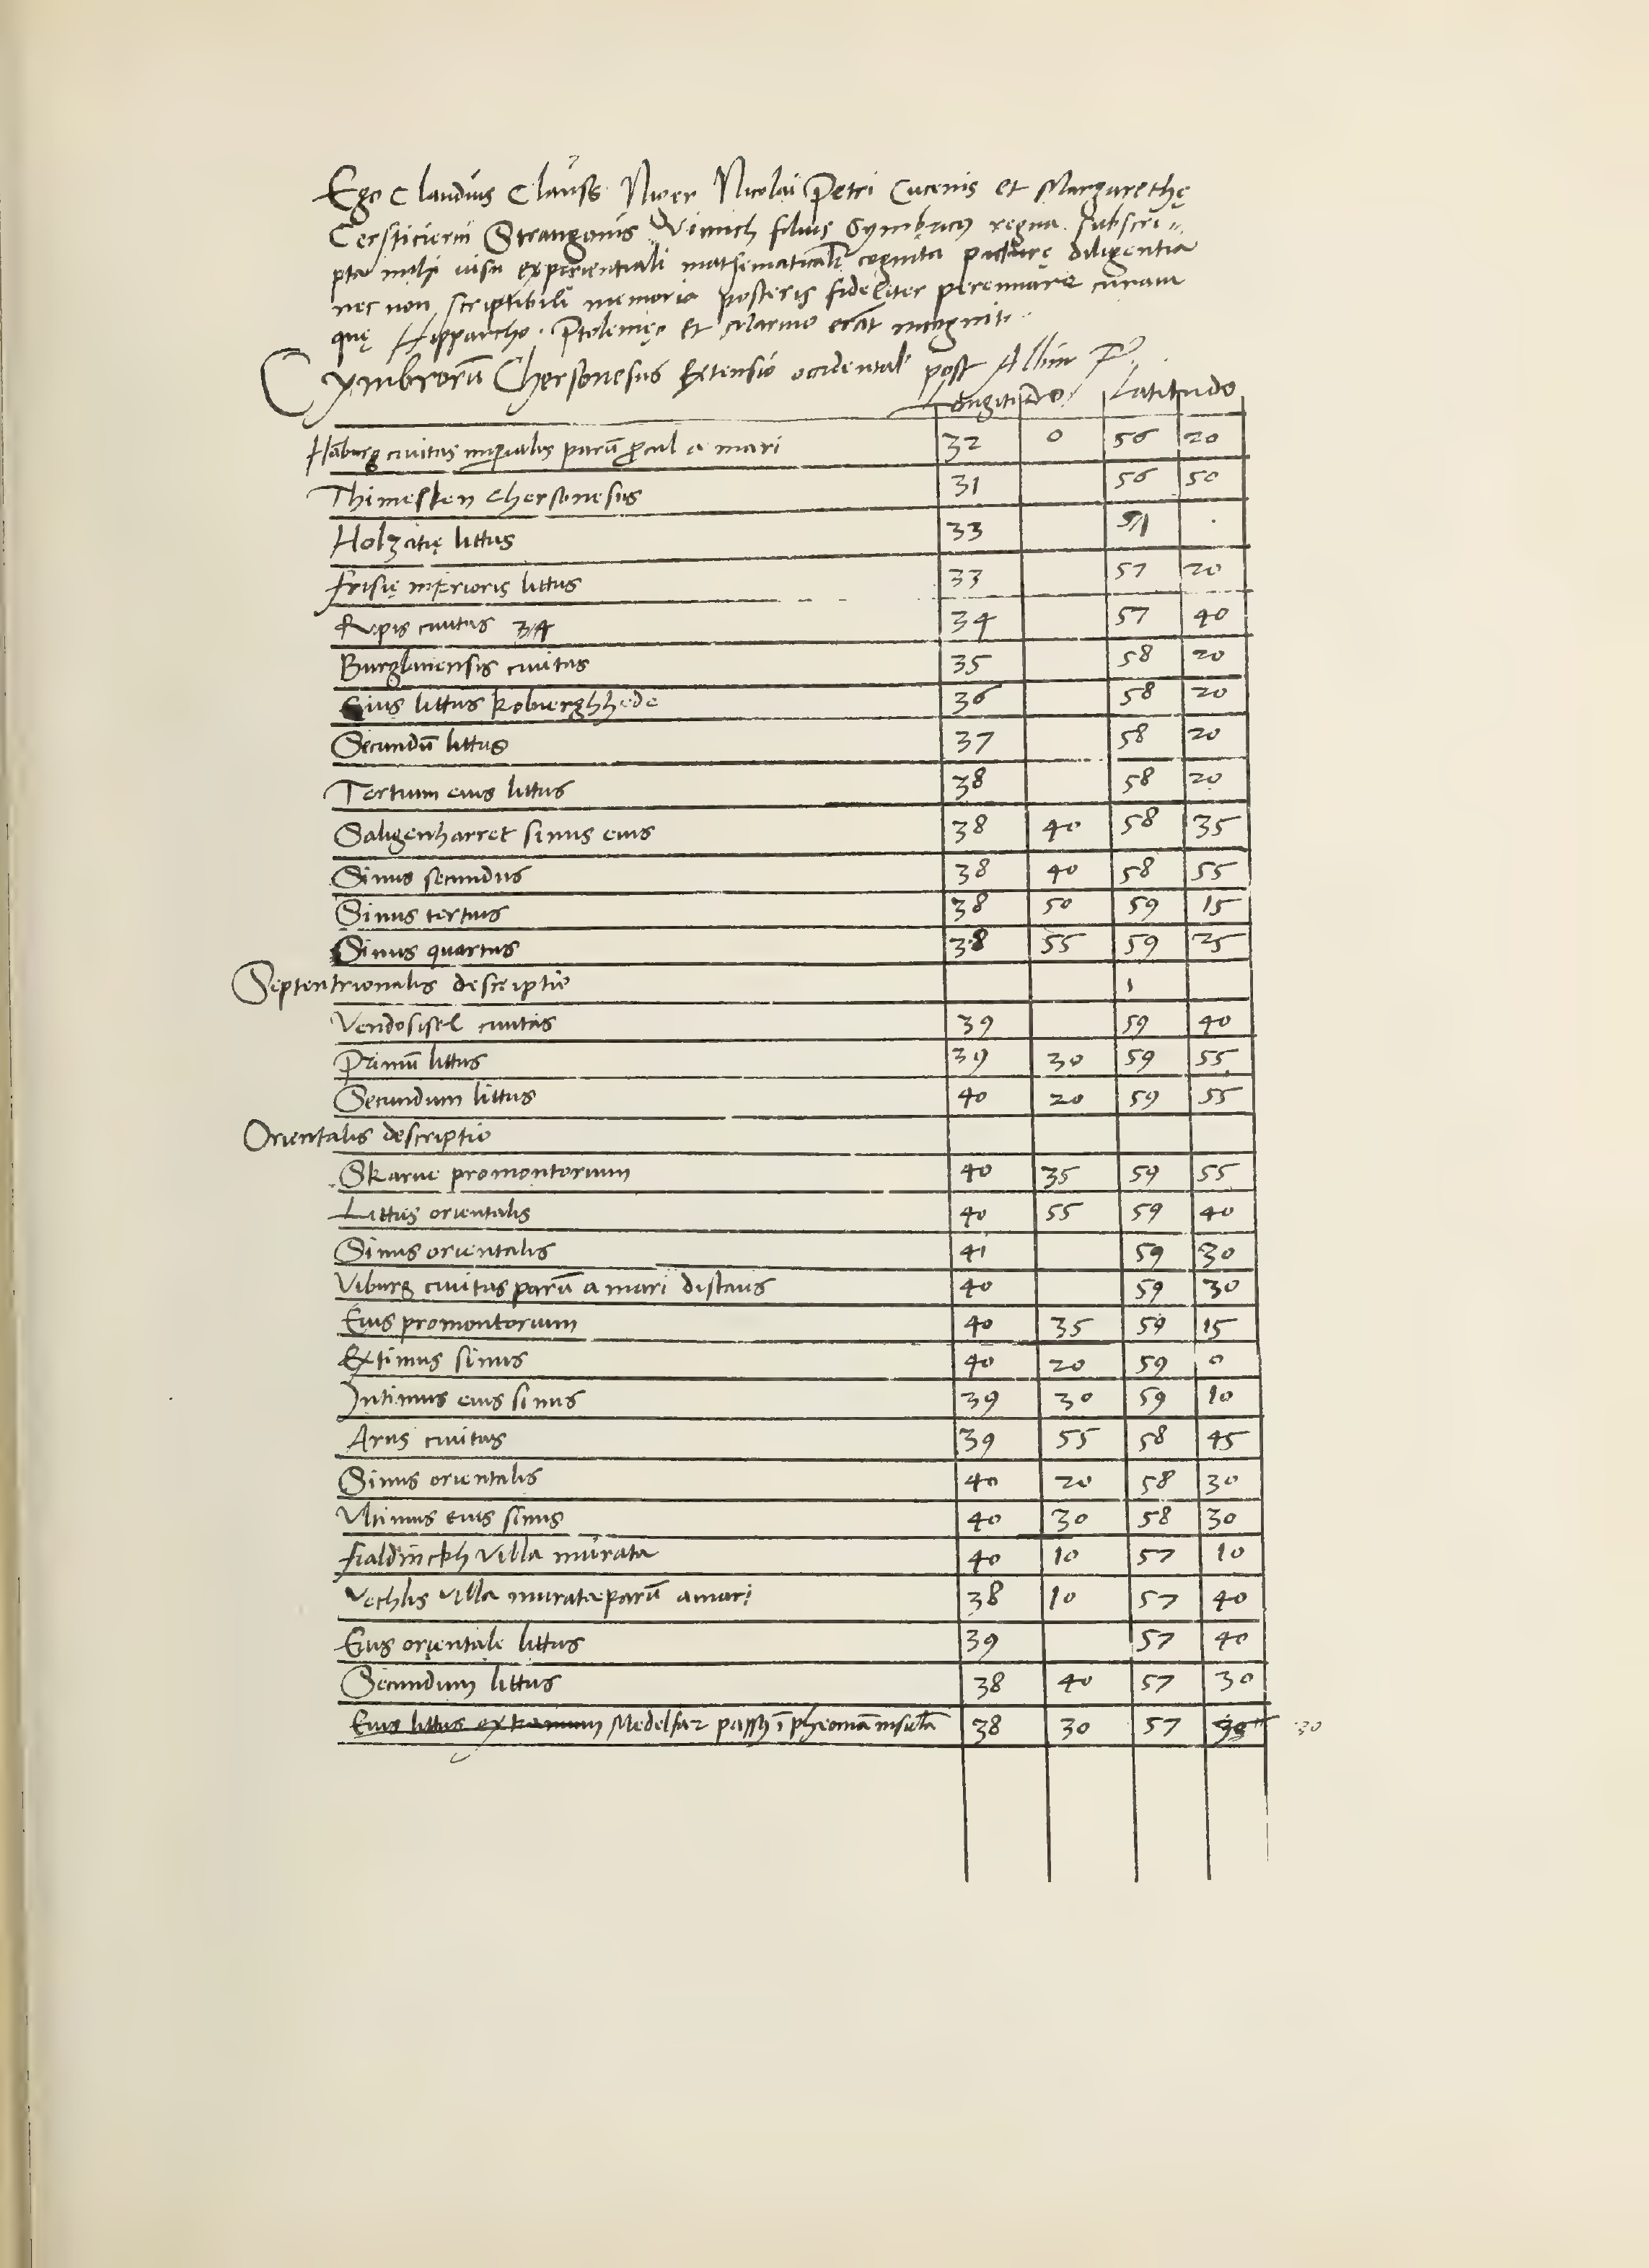 Ego Claudius Clauss Niger Nicolai Petri Cucenis et Margarethę
Cersticierni Strangonis Vimich filius Cymbricus regna subscri„
pta mihi uisu experientiali mathematicali cognita picturę diligentia
nec non scriptibili memoria posteris fideliter perennare curam
quę Hipparcho. Ptolemęo et Marino erāt incogniti.
Cymbrorū Chersonesus Extensio occidental post Albim
Longitudo Latitudo
Hāburg ciuitas imperialis parū procul a mari 32 0 56 20
Thimesken chersonesus 31 56 50
Holzatię littus 33
Frisię inferioris littus 33 57 20
Ripis ciuitas 34 57 40
Burglauiensis ciuitas 35 58 20
Eius littus koberghhede 36 58 20
Secundū littus 37 58 20
Tertium eius littus 38 58 20
Saligenharret sinus eius 38 40 58 35
Sinus secundus 38 40 58 55
Sinus tertius 38 50 59 15
Sinus quartus 38 55 59 25
Septentrionalis descriptio
Vendosisel ciuitas 39 59 40
Primū littus 39 30 59 55
Secundum littus 40 20 59 55
Orientalis descriptio
Skarue promontorium 40 35 59 55
Littus orientalis 40 55 59 40
Sinus orientalis 41 59 30
Viburg ciuitas parū a mari distans 40 59 30
Eius promontorium 40 35 59 15
Extimus sinus 40 20 59 0
Intimus eius sinus 39 30 59 10
Arus ciuitas 39 55 58 45
Sinus orientalis 40 20 58 30
Vltimus eius sinus 40 30 58 30
Fialdinckh villa murata 40 10 57 10
Vechlis villa murata parū a mari 38 10 57 40
Eius orientale littus 39 57 40
Secundum littus 38 40 57 30
Eius littus extremum Medelfar passus ī pheoniā insulā 38 30 57 30